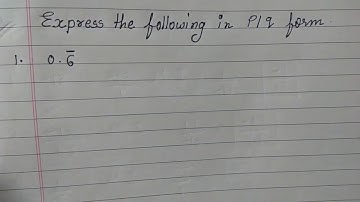 Express the following in P/q form.
1. 0.6̅